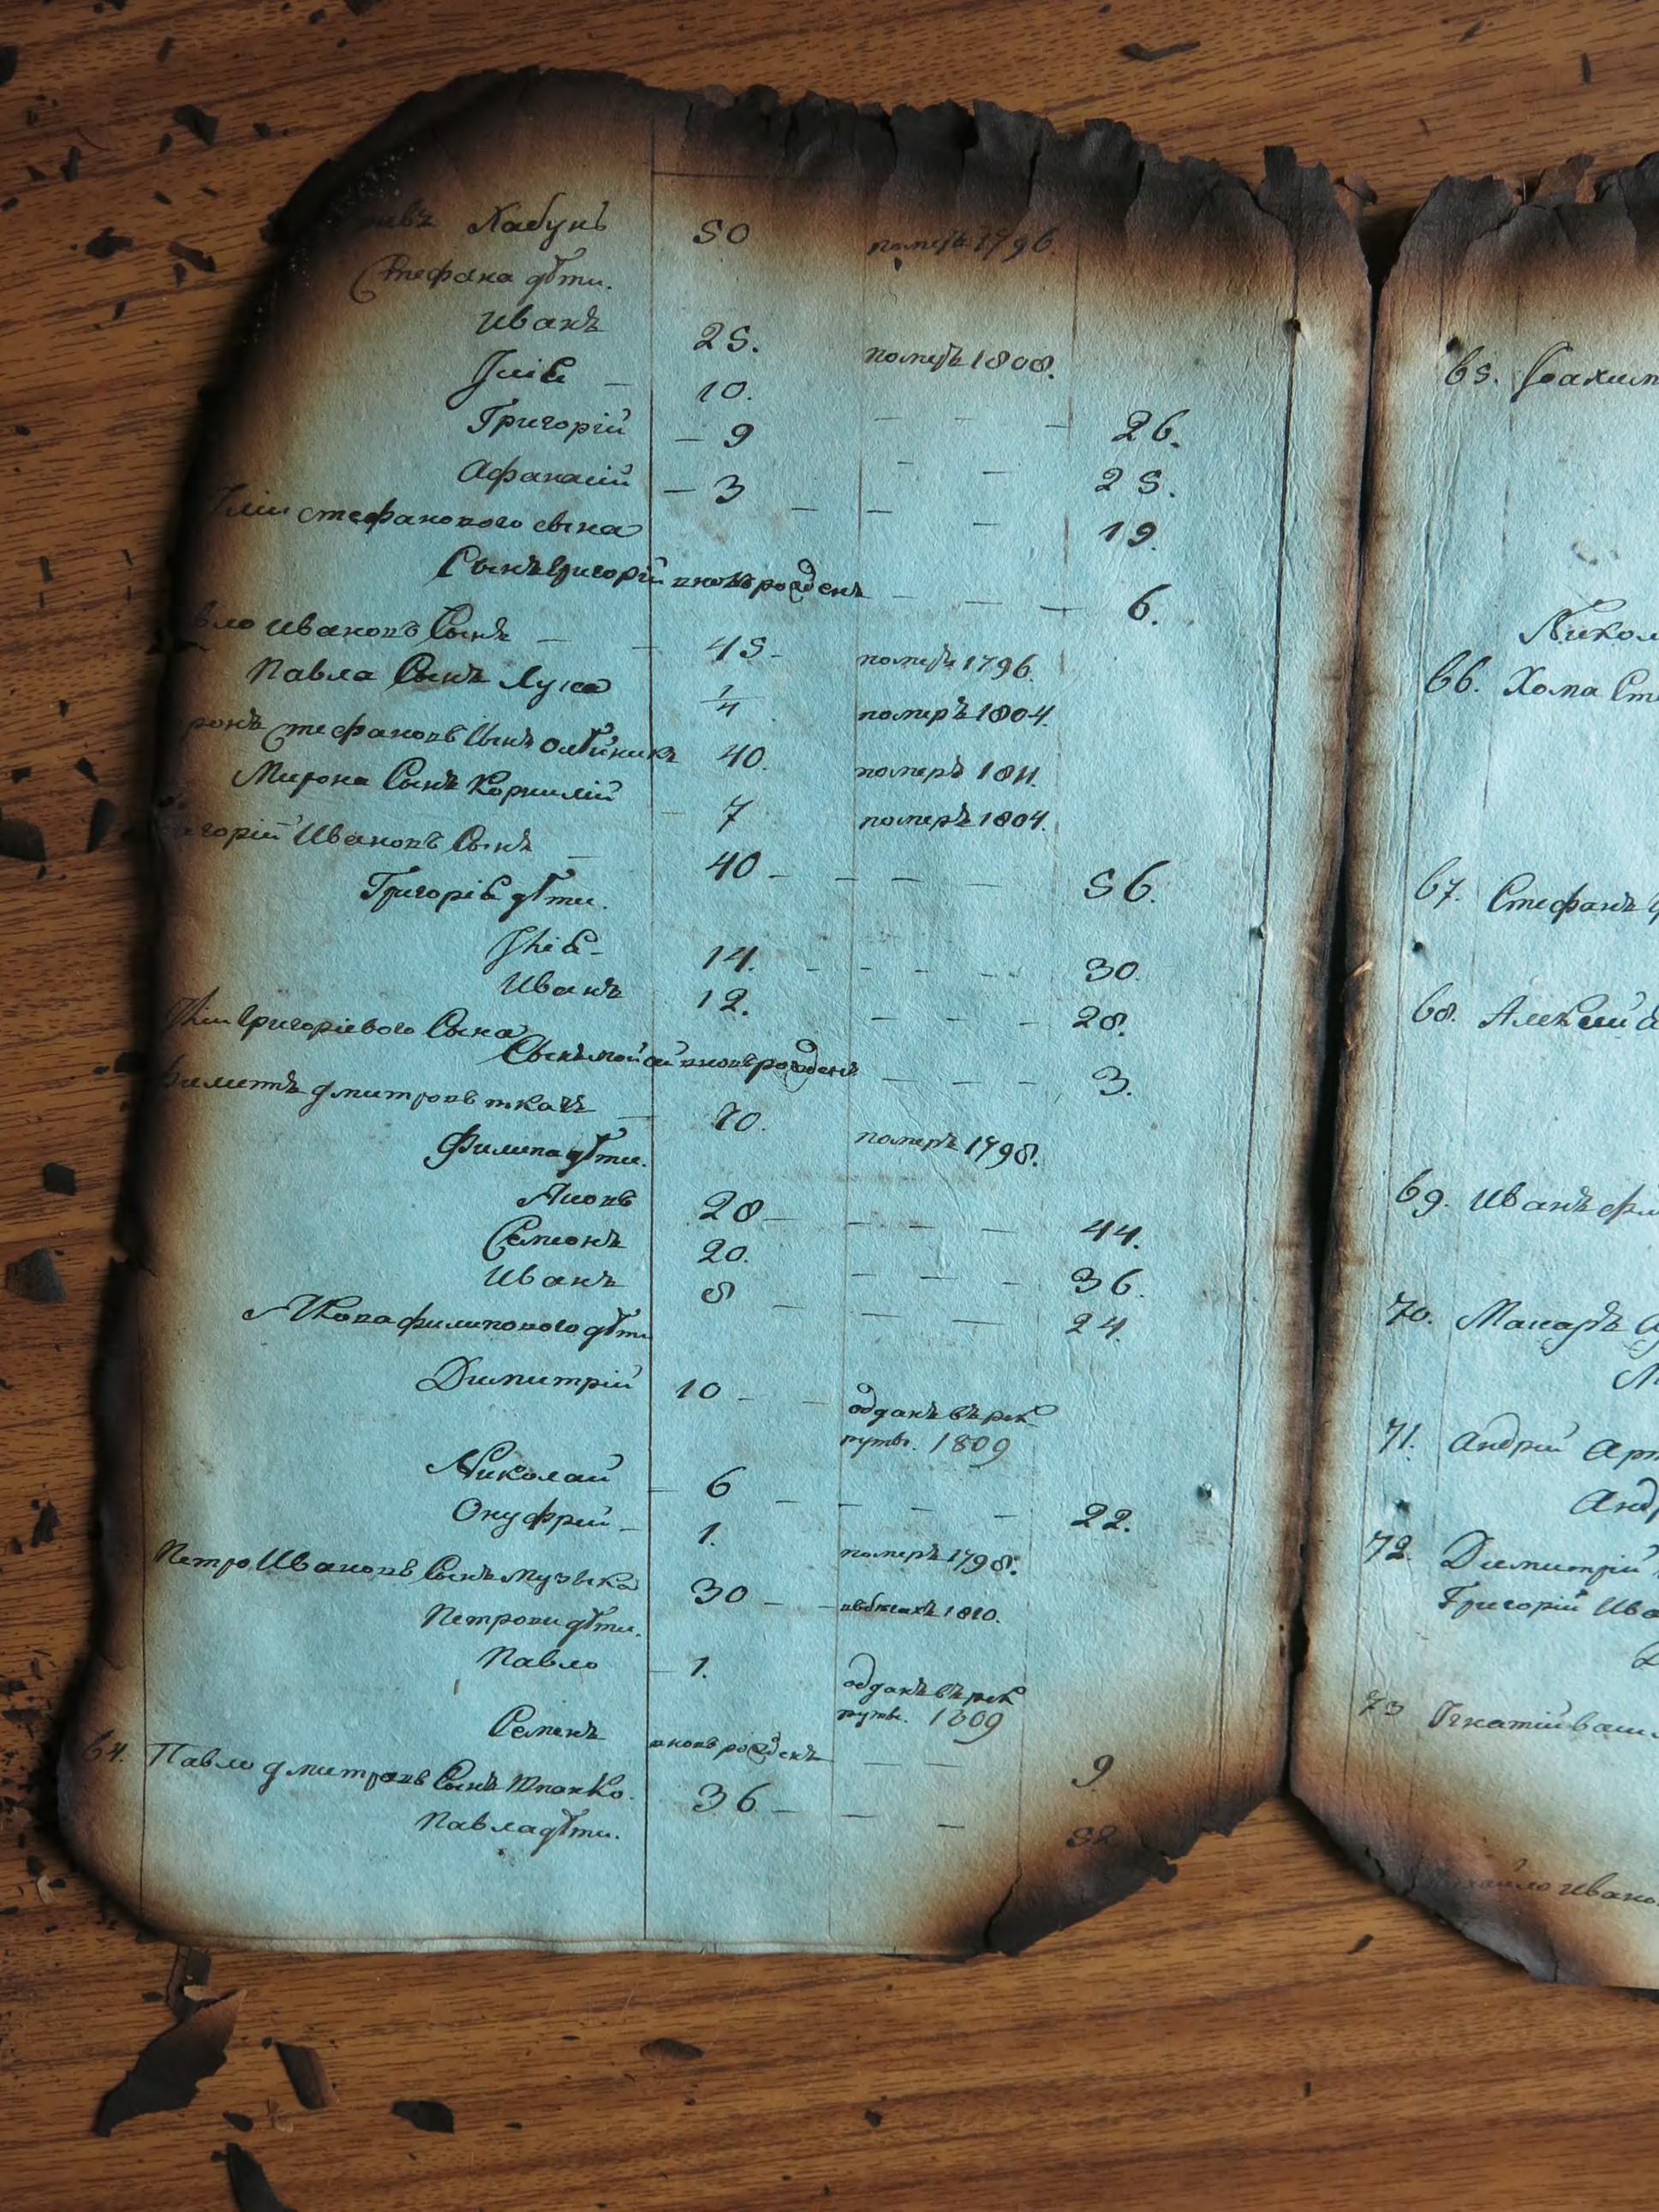 Хабунъ 50 померъ 1796.
Стефана дѣти.
Иванъ 25. померъ 1808.
Iлiя — 10. — — — 26.
Григорiй — 9 — — 25.
Афанасiй — 3 — — — 19.
Iлiи стефанового сына
Сынъ Григорiй вновь рожденъ — — — 6.
Ивановъ Сынъ — — 45 - померъ 1796.
Павла Сынъ Лука 1/4 померъ 1804.
стефановъ Сынъ олѣйникъ 40. померъ 1811.
Мирона Сынъ Корнилiй — 7 померъ 1804.
Ивановъ Сынъ — 40 - — — — 56.
Григорiя дѣти.
Iлiя - 14. - - - - 30.
Иванъ 12. — — — 28.
Iлiи Григорiевого Сына
Сынъ мойсей вновь рожденъ — — — 3.
дмитровъ ткачъ — 70. померъ 1798.
Филипа дѣти.
Яковъ 28 — — — — 44.
Семенъ 20. — — — 36.
Иванъ 8 — — — 24.
Якова филипового дѣти
Димитрiй 10 — — одданъ въ рек
руты. 1809
Николай — 6 — — — 22.
Онуфрiй — 1. померъ 1798.
Петро Ивановъ Сынъ музыка 30 — — 1810.
Петрови дѣти.
Павло — 1. одданъ въ рек
руты. 1809
Семенъ вновь рожденъ — — 9
64. Павло дмитровъ Сынъ Шпонко. 36 — — — 52
Павла дѣти.
65.
Никол
66. Хома Сте
67. Стефанъ
68. Алексiй
69. Иванъ
70. Макаръ
71. Андрiй Арт
Анд
72. Димитрiй
Григорiй Ива
73 Iгнатiй васил
Михайло Ивано